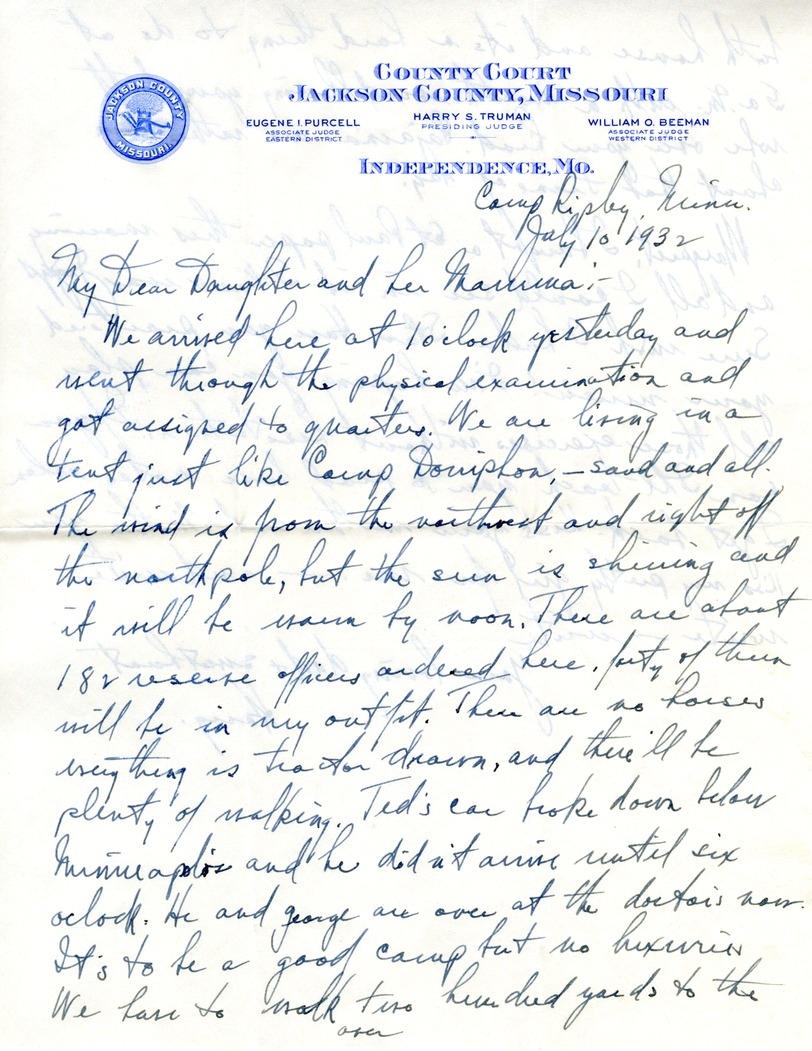 COUNTY COURT
JACKSON COUNTY, MISSOURI
JACKSON COUNTY
MISSOURI
EUGENE I. PURCELL
ASSOCIATE JUDGE
EASTERN DISTRICT
HARRY S. TRUMAN
PRESIDING JUDGE
WILLIAM O. BEEMAN
ASSOCIATE JUDGE
WESTERN DISTRICT
INDEPENDENCE, MO.
Camp Ripley, Minn.
July 10 1932
My Dear Daughter and her Mamma:-
We arrived here at 1 o'clock yesterday and
went through the physical examination and
got assigned to quarters. We are living in a
tent just like Camp Doniphon, - sand and all.
The wind is from the northwest and right off
the northpole, but the sun is shining and
it will be warm by noon. There are about
182 reserve officers ordered here, forty of them
will be in my outfit. There are no horses
everything is tractor drawn, and there'll be
plenty of walking. Ted's car broke down below
Minneapolis and he didn't arrive until six
oclock. He and George are over at the doctors now.
It's to be a good camp but no luxuries
We have to walk two hundred yards to the
over